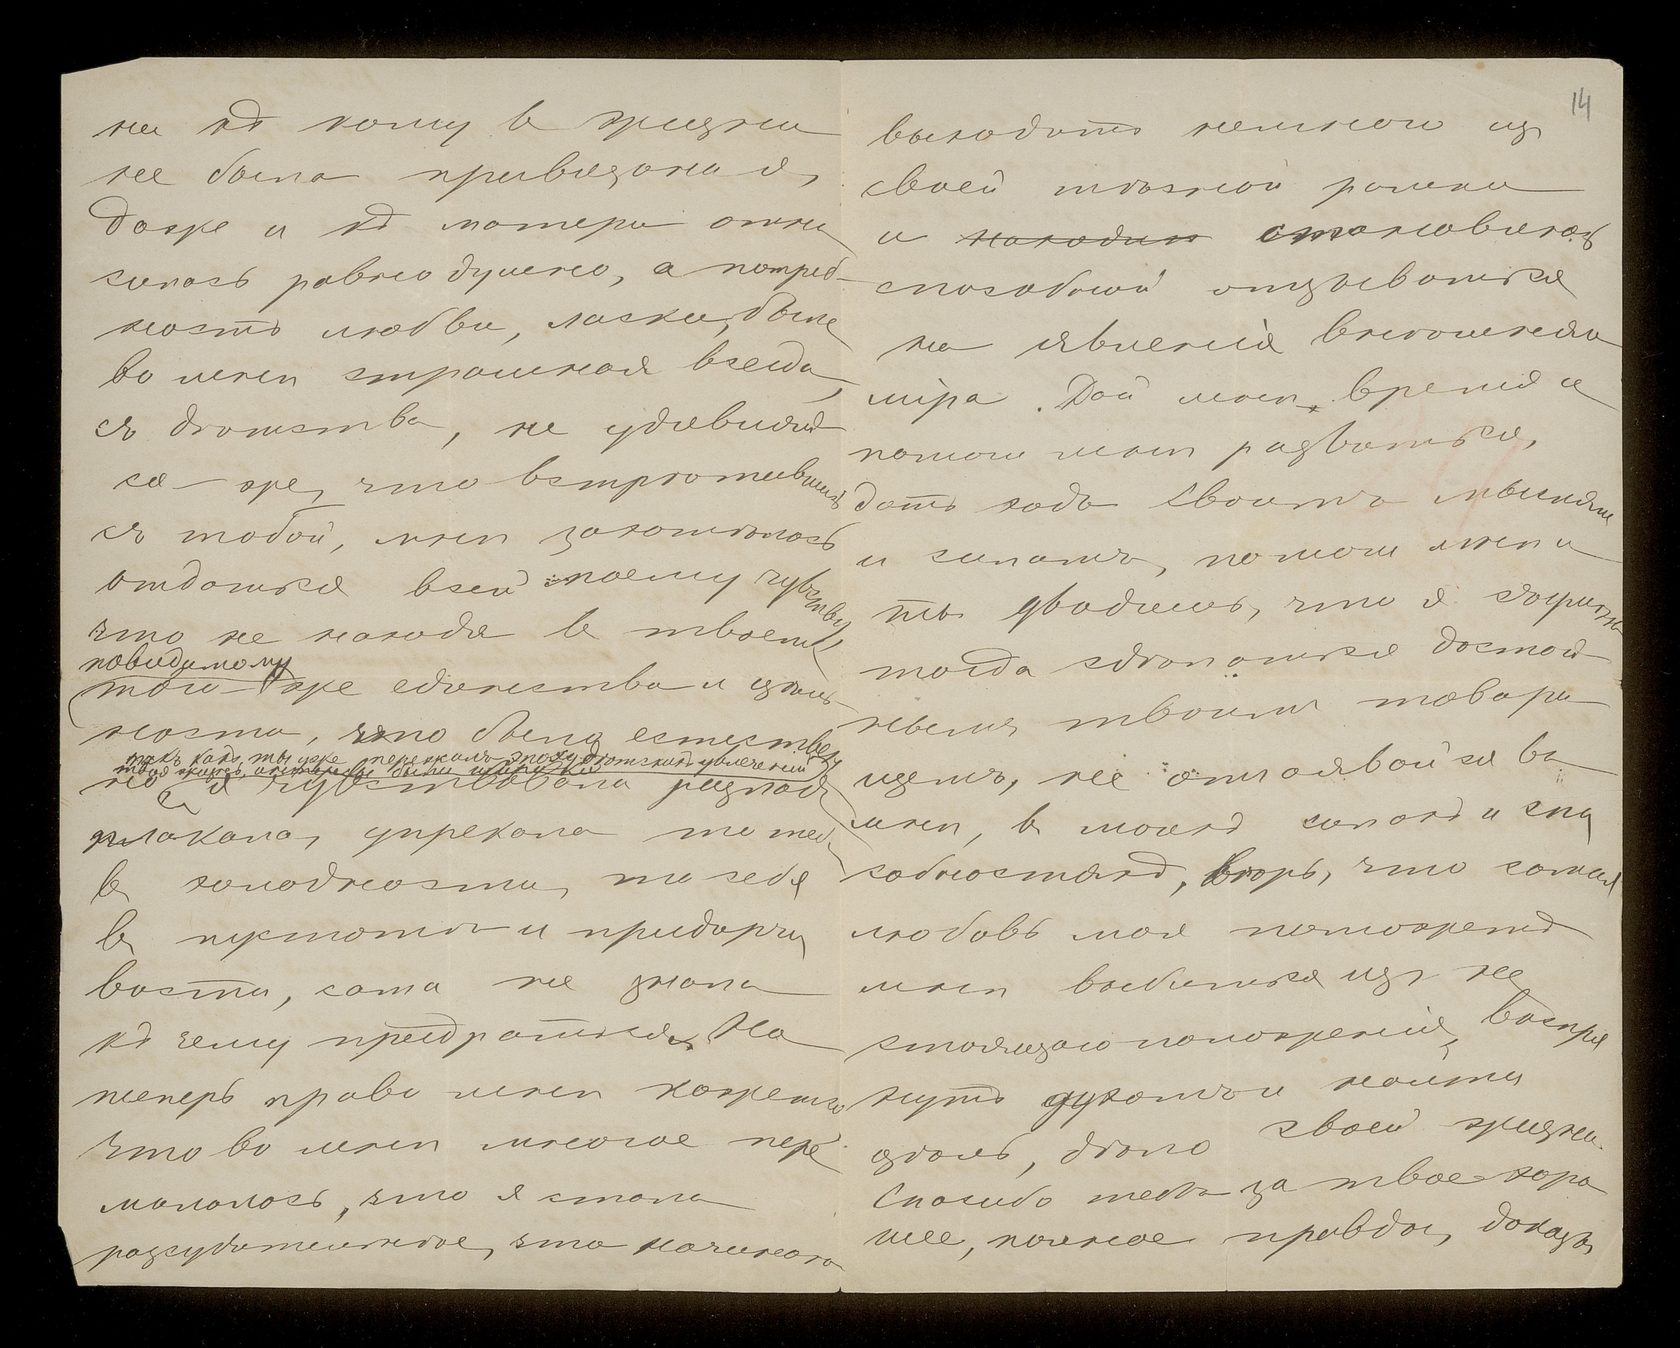 ни къ кому въ жизни
не была привязана я,
даже и къ матери отно
силась равнодушно, а потреб-
ность любви, ласки, была
во мнѣ страшная всегда,
съ дѣтства, не удивляй
ся-же, что встрѣтившись
съ тобой, мнѣ захотѣлось
отдаться всей моему чувству,
что не находя въ твоемъ
повидимому
того-же единства и цѣль-
ности, что было естествен
такъ какъ ты уже пережилъ эпоху юношескихъ увлеченій
но я чувствовала разладъ,
плакала, упрекала то тебя
въ холодности, то себя
въ пустотѣ и придирчи
вости, сама не знала
къ чему придраться. Но
теперь право мнѣ кажется
что во мнѣ многое пере
мололось, что я стала
разсудительнѣе, что начинаю
14
выходить немного изъ
своей тѣсной рамки
и нахожусь становлюсь
способной отзываться
на явленія внѣшняго
міра. Дай мнѣ время и
помоги мнѣ развиться,
дать ходъ своимъ мыслямъ
и силамъ, помоги мнѣ и
ты увидишь, что я съумѣю
тогда сдѣлаться достой-
нымъ твоимъ товари
щемъ, не отчаявайся во
мнѣ, въ моихъ силахъ и спо
собностяхъ, вѣрь, что самая
любовь моя поможетъ
мнѣ выбиться изъ на
стоящаго положенія, воспря
нуть духомъ и найти
цѣль, дѣло своей жизни.
Спасибо тебѣ за твое хоро
шее, полное правды, доказа